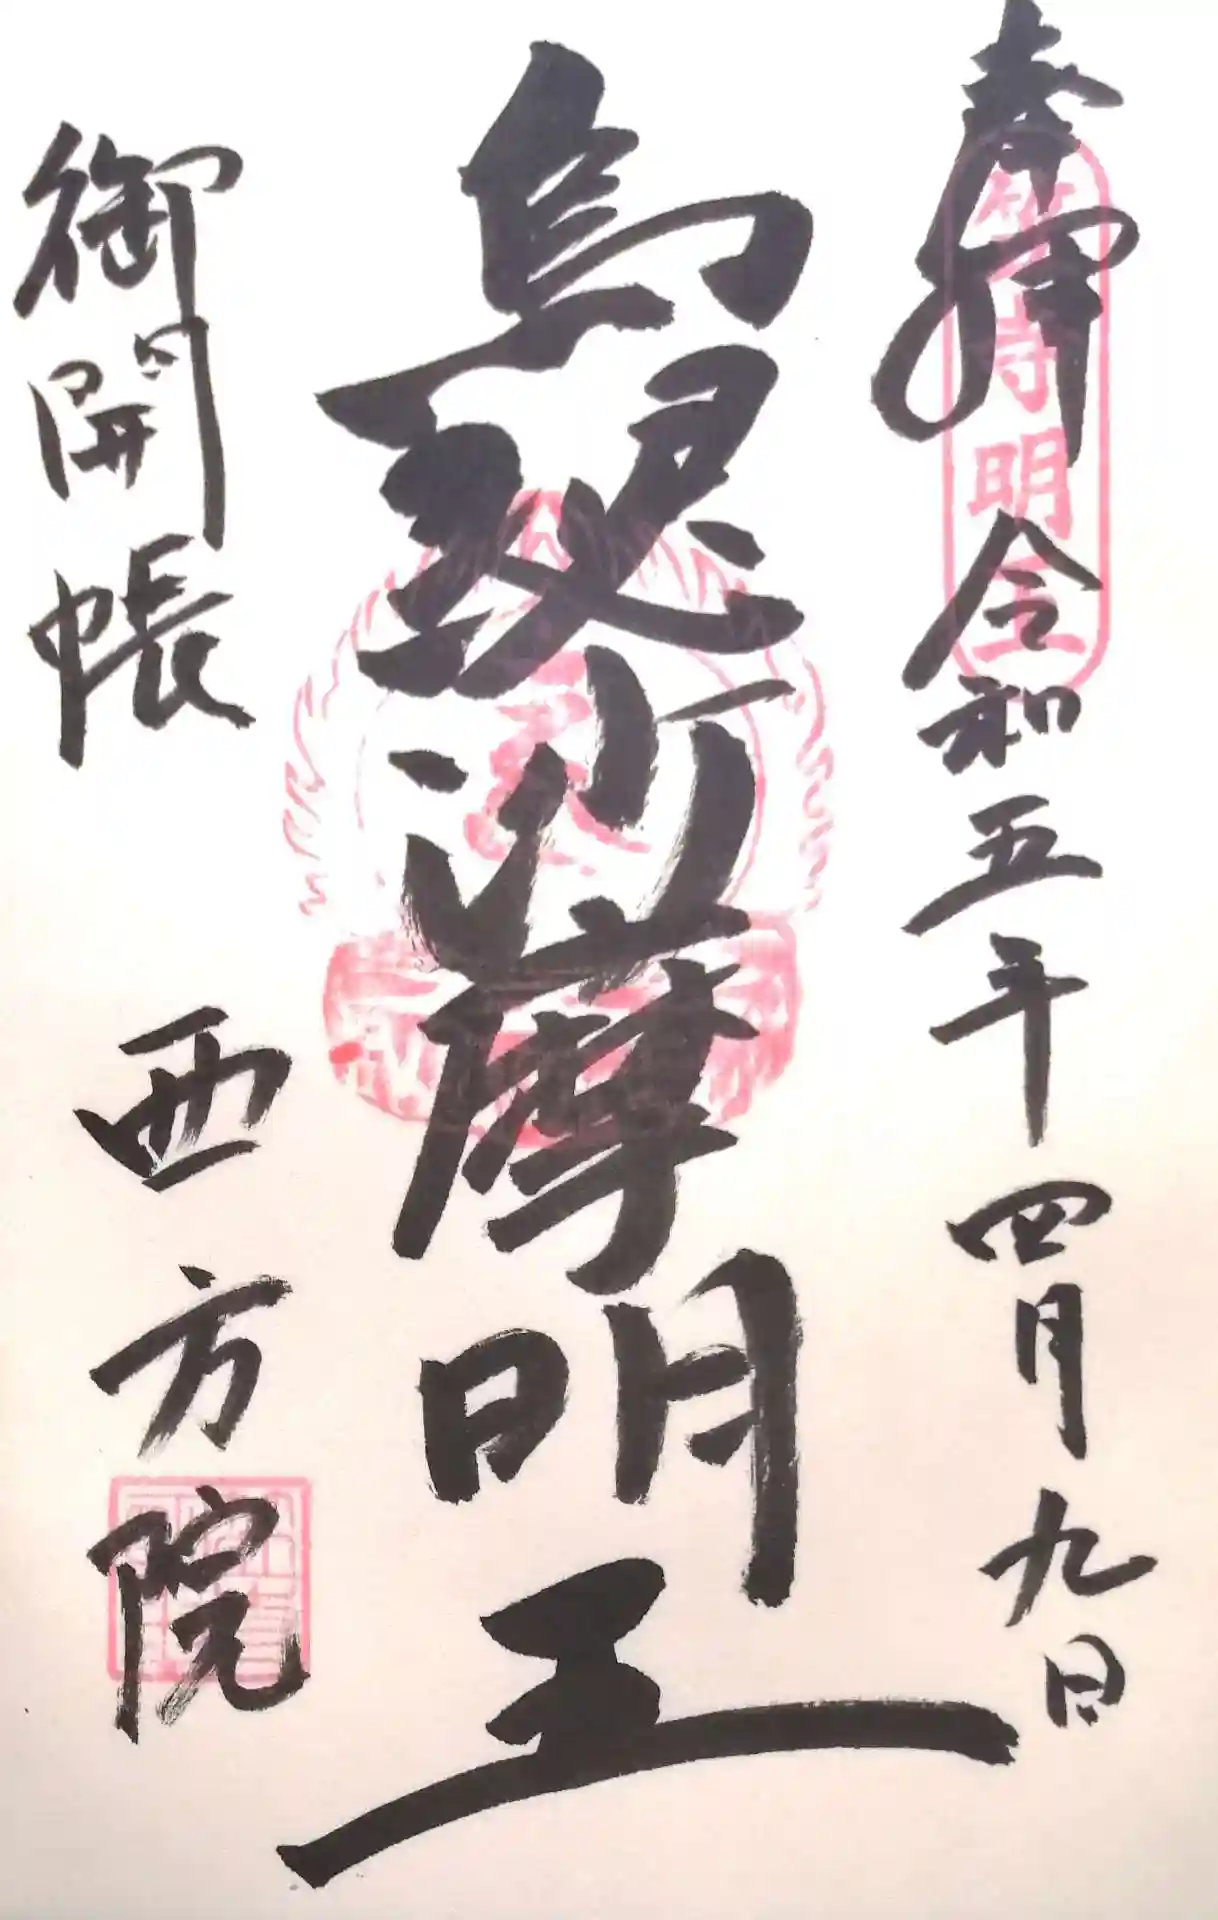 奉拝
令和五年四月九日
烏瑟沙摩明王
御開帳
西方院